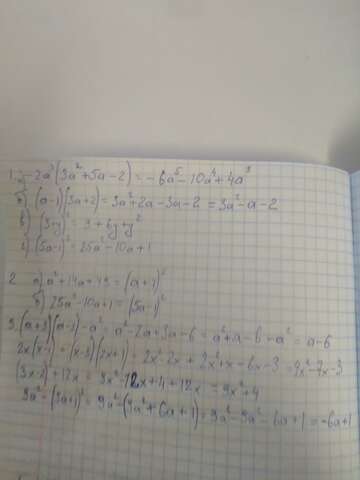 1. а) -2a³(3a²+5a-2)=-6a⁵-10a⁴+4a³
б) (a-1)(3a+2)=3a²+2a-3a-2=3a²-a-2
в) (3+y)²=9+6y+y²
г) (5a-1)²=25a²-10a+1
2 а) a²+14a+49=(a+7)²
б) 25a²-10a+1=(5a-1)²
3. (a+3)(a-2)-a²=a²-2a+3a-6=a²+a-6-a²=a-6
2x(x-1)-(x-3)(2x+1)=2x²-2x+2x²+x-6x-3=4x²-7x-3
(3x-2)²+12x=9x²-12x+4+12x=9x²+4
9a²-(3a+1)²=9a²-(9a²+6a+1)=9a²-9a²-6a+1=-6a+1